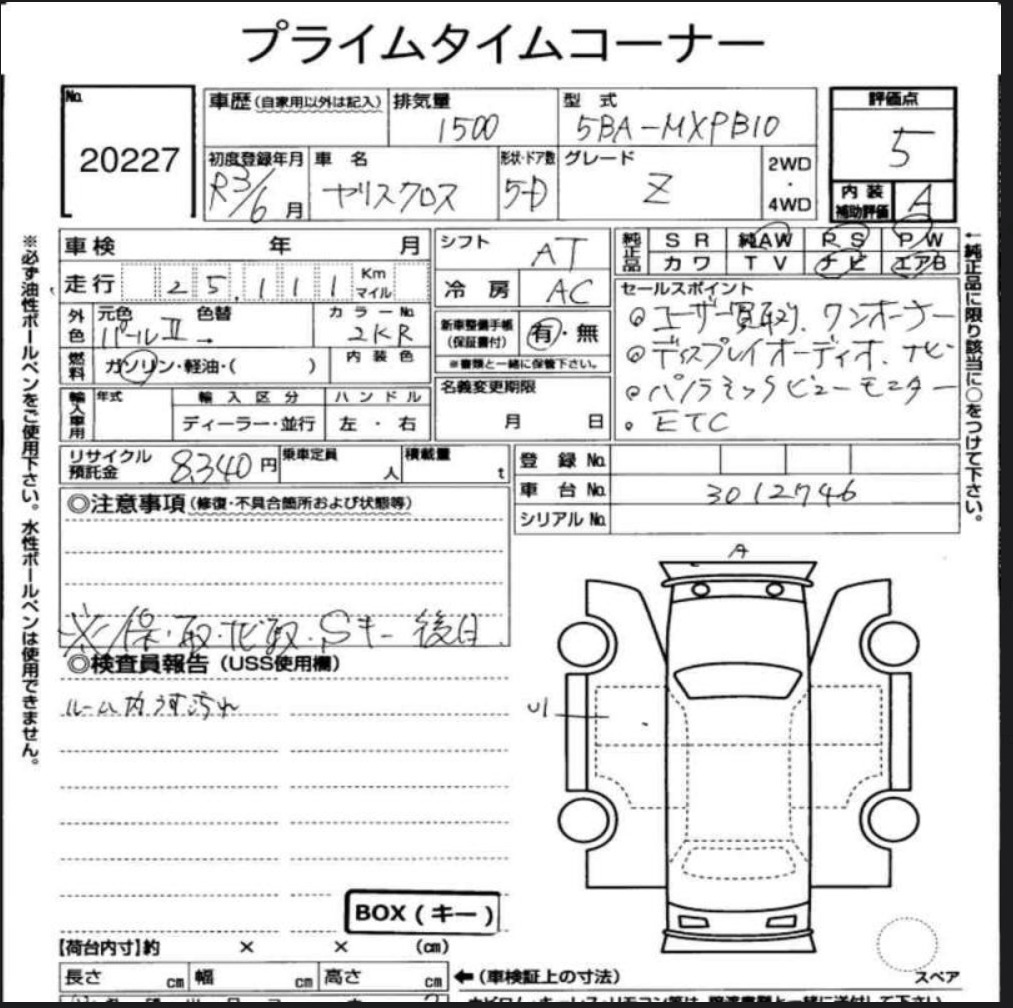 プライムタイムコーナー
No.
20227
車歴(自家用以外は記入)
排気量
1500
型式
5BA-MXPB10
評価点
5
初度登録年月
R3/6月
車名
ヤリスクロス
形状・ドア数
5D
グレード
Z
2WD
・
4WD
内装
補助評価
A
※必ず油性ボールペンをご使用下さい。水性ボールペンは使用できません。
車検 年 月
シフト
AT
純正品
SR 純AW PS PW
カワ TV ナビ エアB
←純正品に限り該当に○をつけて下さい。
走行 25,111 Km
マイル
冷房
AC
セールスポイント
◎ユーザー買取り、ワンオーナー
◎ディスプレイオーディオ、ナビ
◎パノラミックビューモニター
。ETC
外色
元色 色替
パールII →
カラーNo.
2KR
新車整備手帳
(保証書付)
有・無
※書類と一緒に保管下さい。
燃料
ガソリン・軽油・( )
内装色
名義変更期限
月 日
輸入車用
年式
輸入区分
ディーラー・並行
ハンドル
左・右
リサイクル
預託金
8,340円
乗車定員
人
積載量
t
登録No.
車台No.
3012746
シリアルNo.
◎注意事項(修復・不具合箇所および状態等)
※保・取・ナビ取・Sキー後日
◎検査員報告(USS使用欄)
ルーム内うす汚れ
A
U1
BOX(キー)
【荷台内寸】約 × × (cm)
長さ cm 幅 cm 高さ cm
←(車検証上の寸法)
スペア